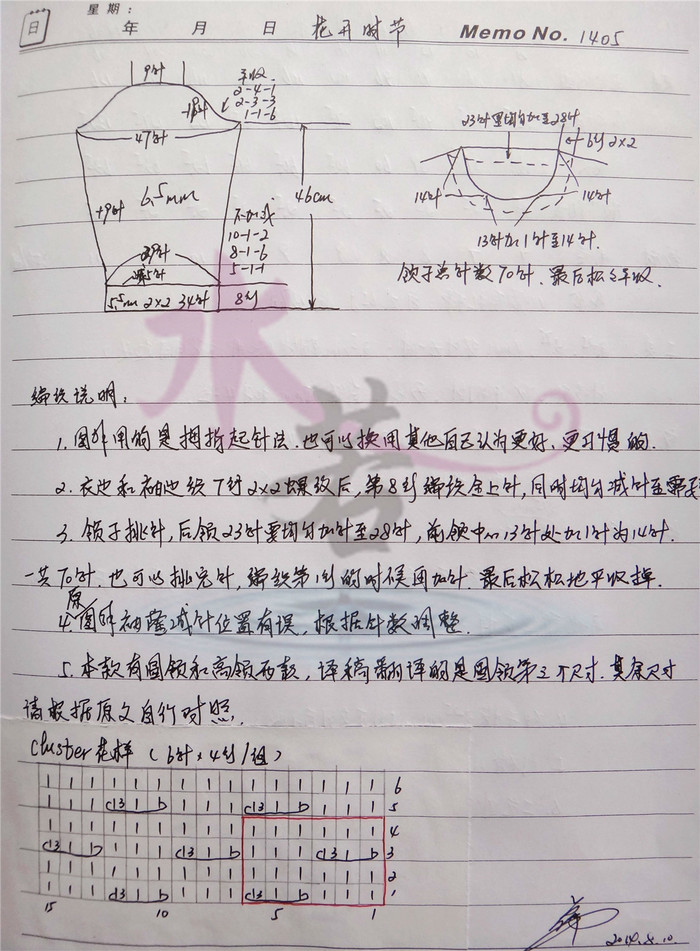 星期:
日 年 月 日 花开时节 Memo No. 1405
9针
平收
2-4-1
2-3-3
1-1-6
47针
+9针
6.5mm
46cm
不加减
10-1-2
8-1-6
5-1-1
29针
5.5m 2×2 34针
8行
23针里均匀加至28针
6行2×2
14针
14针
13针加1针至14针.
领子总针数70针. 最后松松平收.
编织说明:
1.图解用的是拇指起针法.也可以换用其他自己认为更好、更习惯的.
2.衣边和袖边织7行2×2螺纹后,第8行编织全上针,同时均匀减针至需要
3.领子挑针,后领23针要均匀加针至28针,前领中心13针处加1针为14针.
一共70针.也可以挑完针,编织第1行的时候再加针.最后松松地平收掉.
4.原图解袖窿减针位置有误,根据针数调整.
5.本款有圆领和高领两款,译稿翻译的是圆领第三个尺寸.其余尺寸
请根据原文自行对照.
水若
Cluster花样(6针×4行/组)
1 1 1 1 1 1 1 1 1 1 1 1 1 1 1 6
5
1 1 1 1 1 1 1 1 1 1 1 1 1 1 1 4
3
1 1 1 1 1 1 1 1 1 1 1 1 1 1 1 2
1
15 10 5 1
2014.8.10.